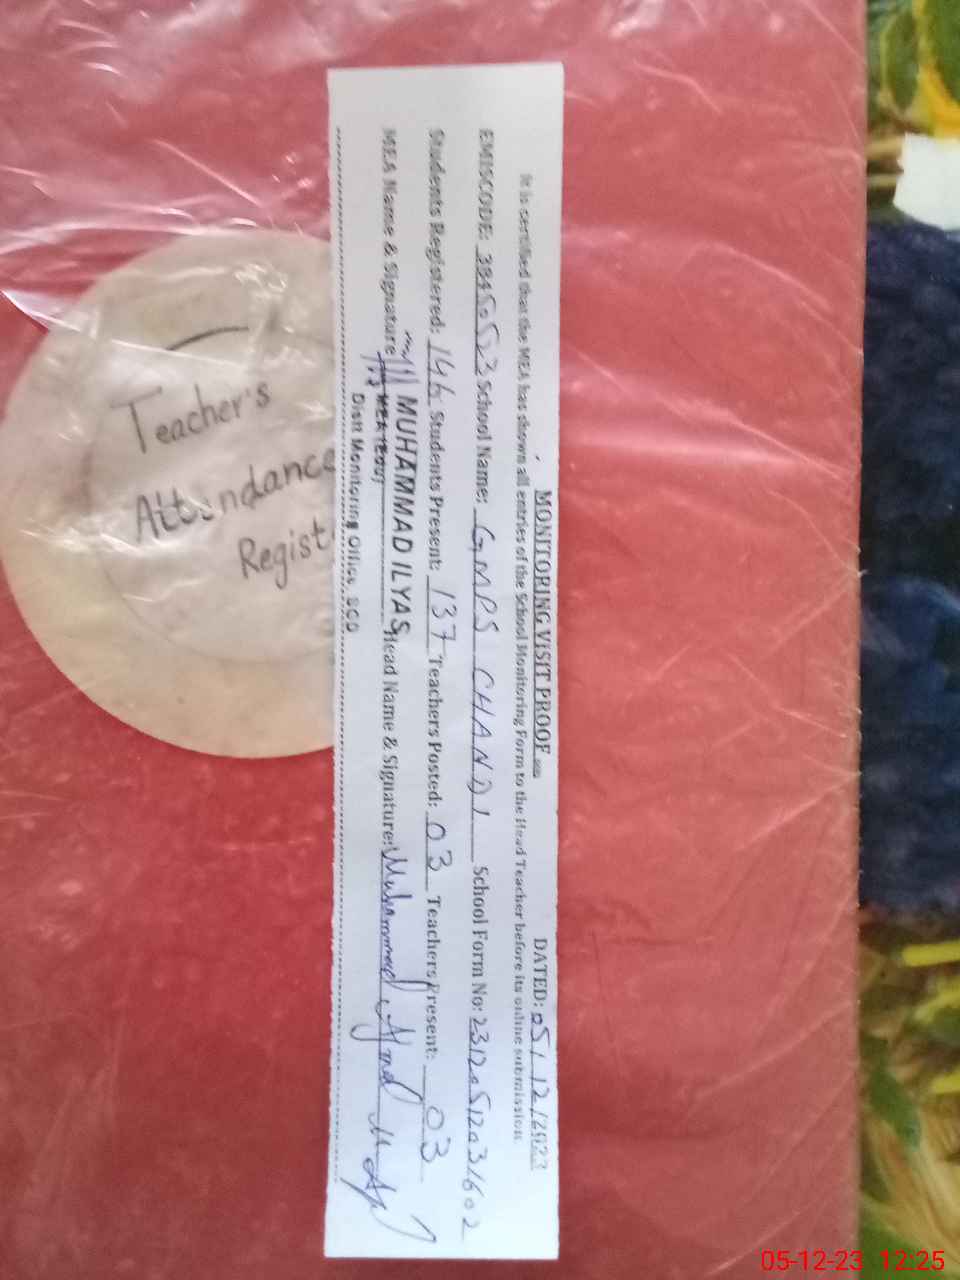 MONITORING VISIT PROOF DATED: 05/12/2023
It is certified that the MEA has shown all entries of the School Monitoring Form to the Head Teacher before its online submission
EMISCODE: School Name: GMPS CHANDI School Form No:
Students Registered: 146 Students Present: 137 Teachers Posted: 03 Teachers Present: 03
MEA Name & Signature MUHAMMAD ILYAS Head Name & Signature: Muhammad
Distt Monitoring Office, SGD
Teacher's
Attendance
Regist
05-12-23 12:25